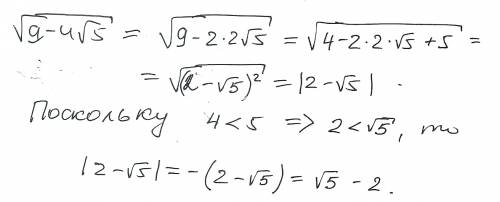 √(9-4√5) = √(9-2·2√5) = √(4-2·2·√5+5) =
= √((2-√5)²) = |2-√5| .
Поскольку 4<5 => 2<√5, то
|2-√5| = -(2-√5) = √5 -2.